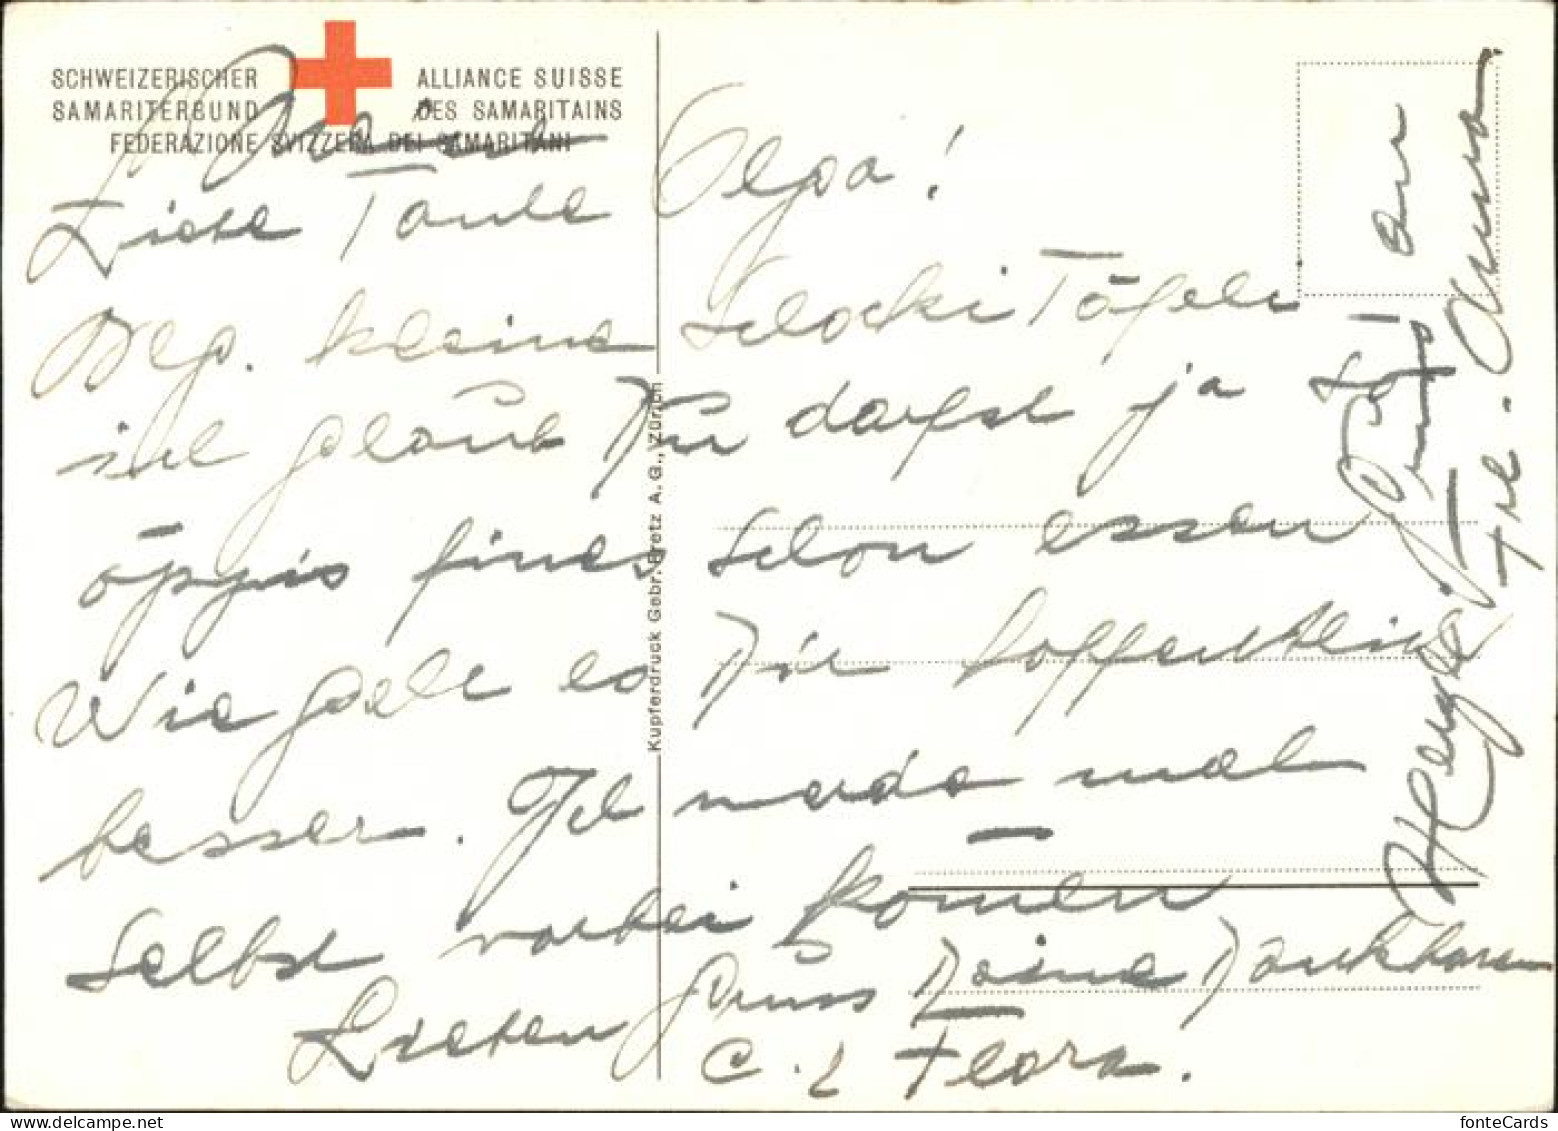 SCHWEIZERISCHER
SAMARITERBUND
ALLIANCE SUISSE
DES SAMARITAINS
FEDERAZIONE SVIZZERA DEI SAMARITANI
Liebe Tante Olga!
Beg. kleine Schocki Täfeli
ich glaub Du darfst ja so
öppis fines schon essen
Wie geht es Dir hoffentlich
besser. Ich werde mal
selbst vorbei kommen
Lieben Gruss Deine Dankbare
C. L Flora.
Herzl. Gruss an
Frl. Anna
Kupferdruck Gebr. Fretz A.G., Zürich
fonteCards